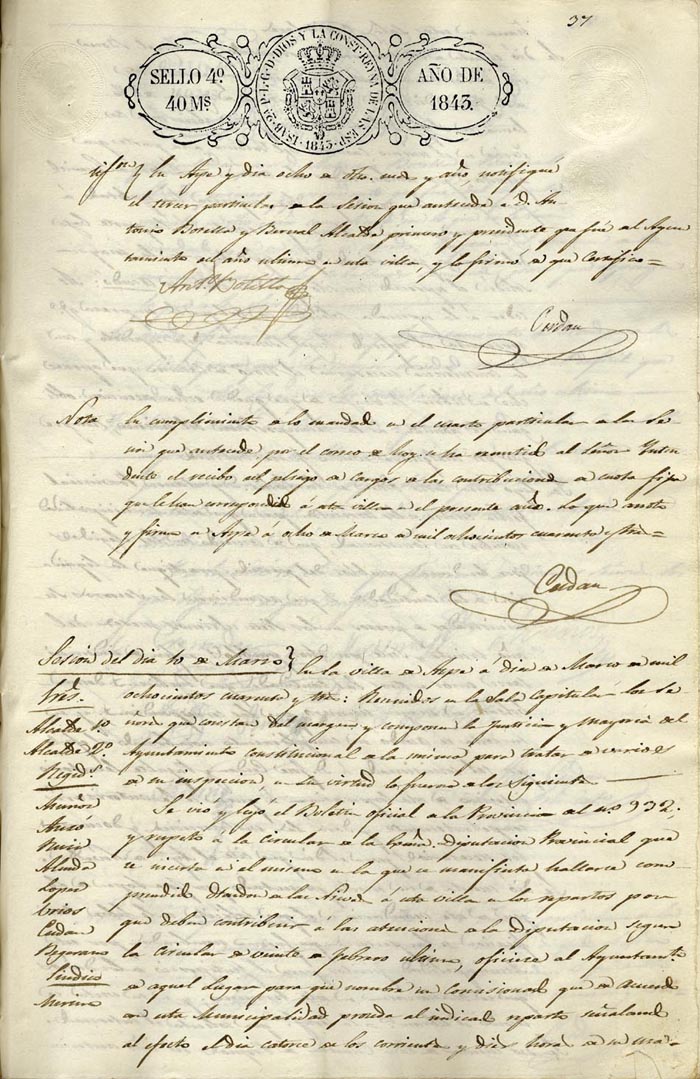 37
SELLO 4º
40 Ms
ISAB. 2ª P. L. G. D. DIOS Y LA CONST. REYNA DE LAS ESP.
1843
AÑO DE
1843.
En Aspe y dia ocho de dho. mes y año, notifiqué
el tercer particular de la Sesion que antecede a D. An
tonio Botella y Alcalde primero y presidente que fué del Ayun
tamiento del año ultimo en esta villa, y lo firmó de que Certifico=
Antº Botella
Cerdan
Nota En cumplimiento de lo mandado en el cuarto particular de la Se
sion que antecede por el correo de hoy se ha remitido al Señor Inten
dente el recibo del pliego de cargos de las contribuciones de cuota fija
que le han correspondido á esta villa en el presente año. Lo que anoto
y firmo en Aspe á ocho de Marzo de mil ochocientos cuarenta y tres=
Cerdan
Sesion del dia 10 de Marzo
En la villa de Aspe á diez de Marzo de mil
ochocientos cuarenta y tres: Reunidos en la Sala Capitular los Se
ñores que constan del margen y componen la Justicia y Mayoria del
Ayuntamiento constitucional de la misma para tratar de varios
de su inspeccion, en su virtud lo fueron de los siguientes
Se vió y leyó el Boletin oficial de la Provincia del nº 932.
y respeto á la circular de la Diputacion Provincial que
se incerta en el mismo en la que se manifiesta hallarse com
prendido de las á esta villa en los repartos por
que deben contribuir á las atenciones de la diputacion segun
la Circular de veinte de febrero ultimo, oficiese al Ayuntamto
de aquel Lugar para que nombre un Comisionado que de acuerdo
con esta Municipalidad proceda al indicado reparto señalando
al efecto el dia catorce de los corrientes y diez horas de su ma=
Sres.
Alcalde 1º
Alcalde 2º
Regids
Muñoz
Ruiz
Almda
Lopez
Cerdan
Bejarano
Sindico
Merino